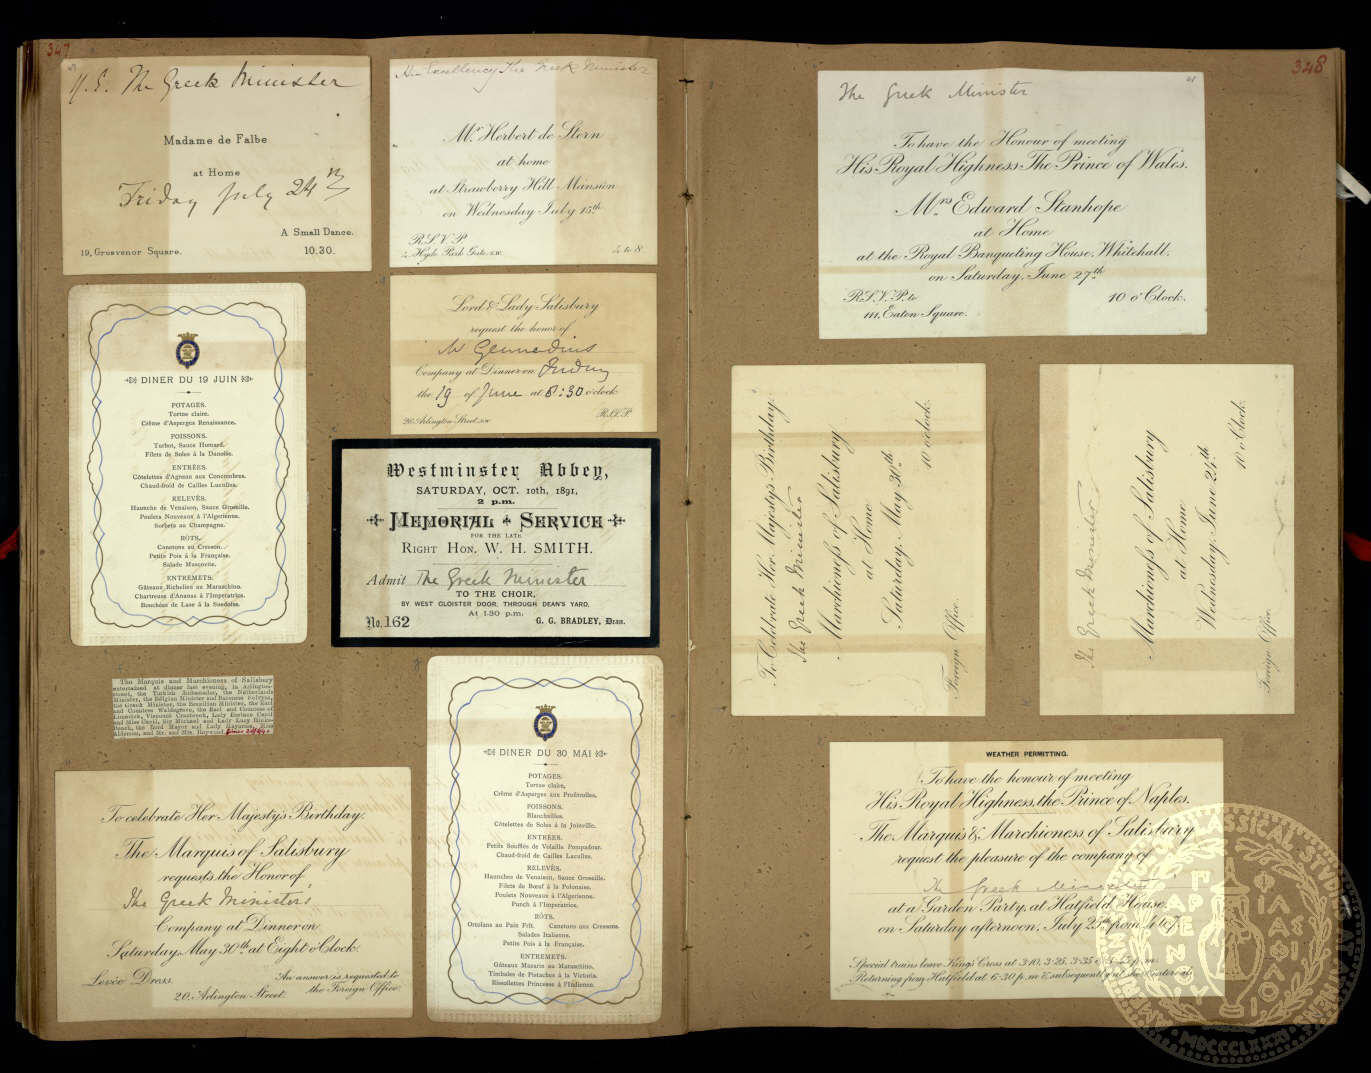 347
H.E. The Greek Minister
Madame de Falbe
at Home
Friday July 24th
A Small Dance.
19, Grosvenor Square.
10.30.
His Excellency The Greek Minister
Mr Herbert de Stern
at home
at Strawberry Hill Mansion
on Wednesday July 15th
R.S.V.P.
Hyde Park Gate. S.W.
4 to 8
DINER DU 19 JUIN
POTAGES.
Tortue claire.
Crême d'Asperges Renaissance.
POISSONS.
Turbot, Sauce Homard.
Filets de Soles à la Danoise.
ENTRÉES.
Côtelettes d'Agneau aux Concombres.
Chaud-froid de Cailles Lucullus.
RELEVÉS.
Haunche de Venaison, Sauce Groseille.
Poulets Nouveaux à l'Algerienne.
Sorbets au Champagne.
RÔTS.
Canetons au Cresson.
Petits Pois à la Française.
Salade Muscovite.
ENTREMETS.
Gâteaux Richelieu au Maraschino.
Chartreuse d'Ananas à l'Imperatrice.
Bouchées de Laxe à la Suedoise.
Lord & Lady Salisbury
request the honor of
M Gennadius
Company at Dinner on Friday
the 19 of June at 8:30 o'clock
20 Arlington Street. S.W.
R.S.V.P.
Westminster Abbey,
SATURDAY, OCT. 10th, 1891,
2 p.m.
MEMORIAL SERVICE
FOR THE LATE
RIGHT HON. W. H. SMITH.
Admit The Greek Minister
TO THE CHOIR,
BY WEST CLOISTER DOOR, THROUGH DEAN'S YARD,
At 1.30 p.m.
No. 162
G. G. BRADLEY, Dean.
The Marquis and Marchioness of Salisbury
entertained at dinner last evening, in Arlington-
street, the Turkish Ambassador, the Netherlands
Minister, the Belgian Minister and Baroness Solvyns,
the Greek Minister, the Brazilian Minister, the Earl
and Countess Waldegrave, the Earl and Countess of
Limerick, Viscount Cranbrook, Lady Eustace Cecil
and Miss Cecil, Sir Michael and Lady Lucy Hicks-
Beach, the Lord Mayor and
To celebrate Her Majesty's Birthday.
The Marquis of Salisbury
requests the Honor of
The Greek Minister's
Company at Dinner on
Saturday, May 30th at Eight o'Clock.
Levée Dress.
20, Arlington Street.
An answer is requested to
the Foreign Office.
DINER DU 30 MAI
POTAGES.
Tortue claire.
Crême d'Asperges aux Profitrolles.
POISSONS.
Blanchailles.
Côtelettes de Soles à la Joinville.
ENTRÉES.
Petits Soufflés de Volaille Pompadour.
Chaud-froid de Cailles Lucullus.
RELEVÉS.
Haunches de Venaison, Sauce Groseille.
Filets de Bœuf à la Polonaise.
Poulets Nouveaux à l'Algerienne.
Punch à l'Imperatrice.
RÔTS.
Ortolans au Pain Frit. Canetons aux Cressons.
Salades Italienne.
Petits Pois à la Française.
ENTREMETS.
Gâteaux Mazarin au Maraschino.
Timbales de Pistaches à la Victoria.
Rissolettes Princesse à l'Indienne.
348
The Greek Minister
To have the Honour of meeting
His Royal Highness The Prince of Wales.
Mrs Edward Stanhope
at Home
at the Royal Banqueting House, Whitehall,
on Saturday, June 27th
R.S.V.P. to
111, Eaton Square.
10 o'Clock.
To Celebrate Her Majesty's Birthday.
The Greek Minister
Marchioness of Salisbury
at Home
Saturday, May 30th
Foreign Office.
10 o'clock.
The Greek Minister
Marchioness of Salisbury
at Home
Wednesday, June 24th
Foreign Office.
10 o'Clock.
WEATHER PERMITTING.
To have the honour of meeting
His Royal Highness, the Prince of Naples.
The Marquis & Marchioness of Salisbury
request the pleasure of the company of
The Greek Minister
at a Garden Party, at Hatfield House,
on Saturday afternoon, July 25th from 4 to 7
Special trains leave King's Cross at 3.10, 3.25, 3.35 & 3.45 p.m.
Returning from Hatfield at 6.30 p.m. & subsequently
MDCCCLXXXI